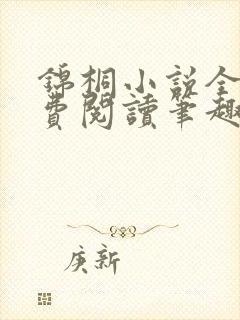 錦桐小說全
費閱讀筆趣
庚新